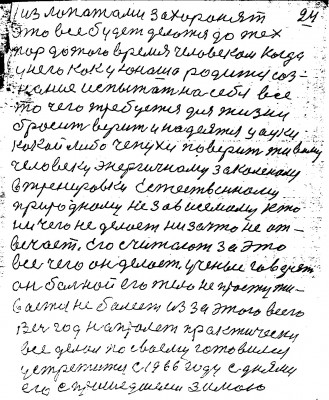 24
из лопатами захоронят
это все будет делотся до тех
пор до того время человеком когда
у него как у юноша родится соз-
нание испытат на себя все
то чего требуется для жизни
бросит верит и надеятся науки
какой либо чепухи поверит живому
человеку энергичному закаленому
в тренировки Естественому
природному независемому кто
ничего не делает ни за что не от-
вечает. Его считают за это
все чего он делает ученые говорят
он болной его тело не простужи-
вается не болеет из за этого всего
13й год напролет практически
все делал по своему готовился
устретится с 1966 году с днями
его с пришедшею зимою